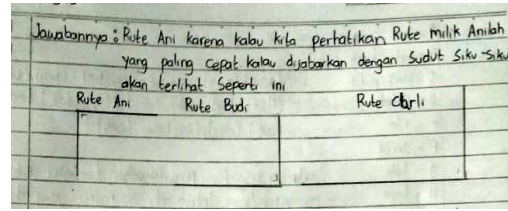 Jawabannya : Rute Ani karena kalau kita perhatikan Rute milik Anilah
yang paling cepat. kalau dijabarkan dengan Sudut Siku-Siku
akan terlihat Seperti ini
Rute Ani Rute Budi Rute Charli